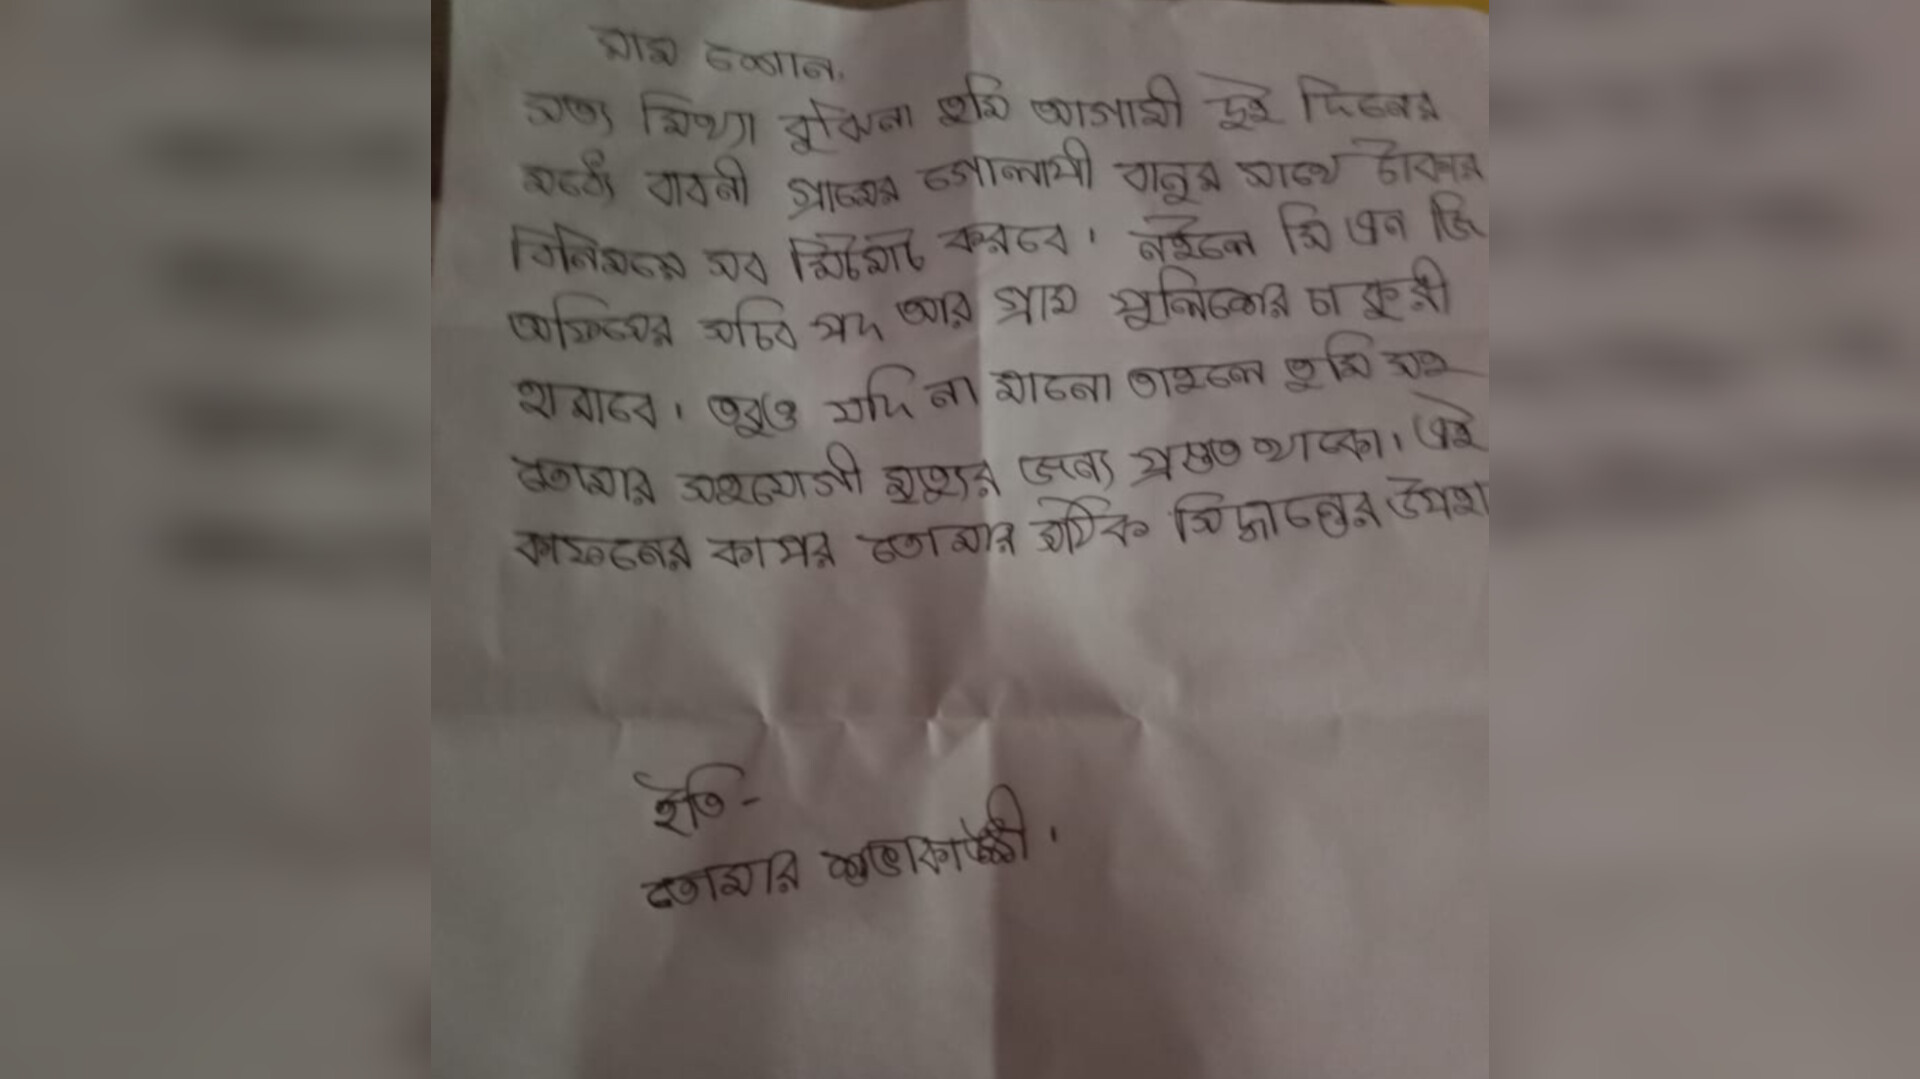 সাম শোন,
সত্য মিথ্যা বুঝিনা তুমি আগামী দুই দিনের
মধ্যে বাবনী গ্রামের গোলাপী বানুর সাথে টাকার
বিনিময়ে সব মিটমাট করবে। নইলে সি এন জি
অফিসের সচিব পদ আর গ্রাম পুলিশের চাকুরী
হারাবে। তবুও যদি না মানো তাহলে তুমি সহ
তোমার সহযোগী মৃত্যুর জন্য প্রস্তুত থাকো। এই
কাফনের কাপর তোমার সঠিক সিদ্ধান্তের উপহা
ইতি-
তোমার শুভাকাঙ্ক্ষী।